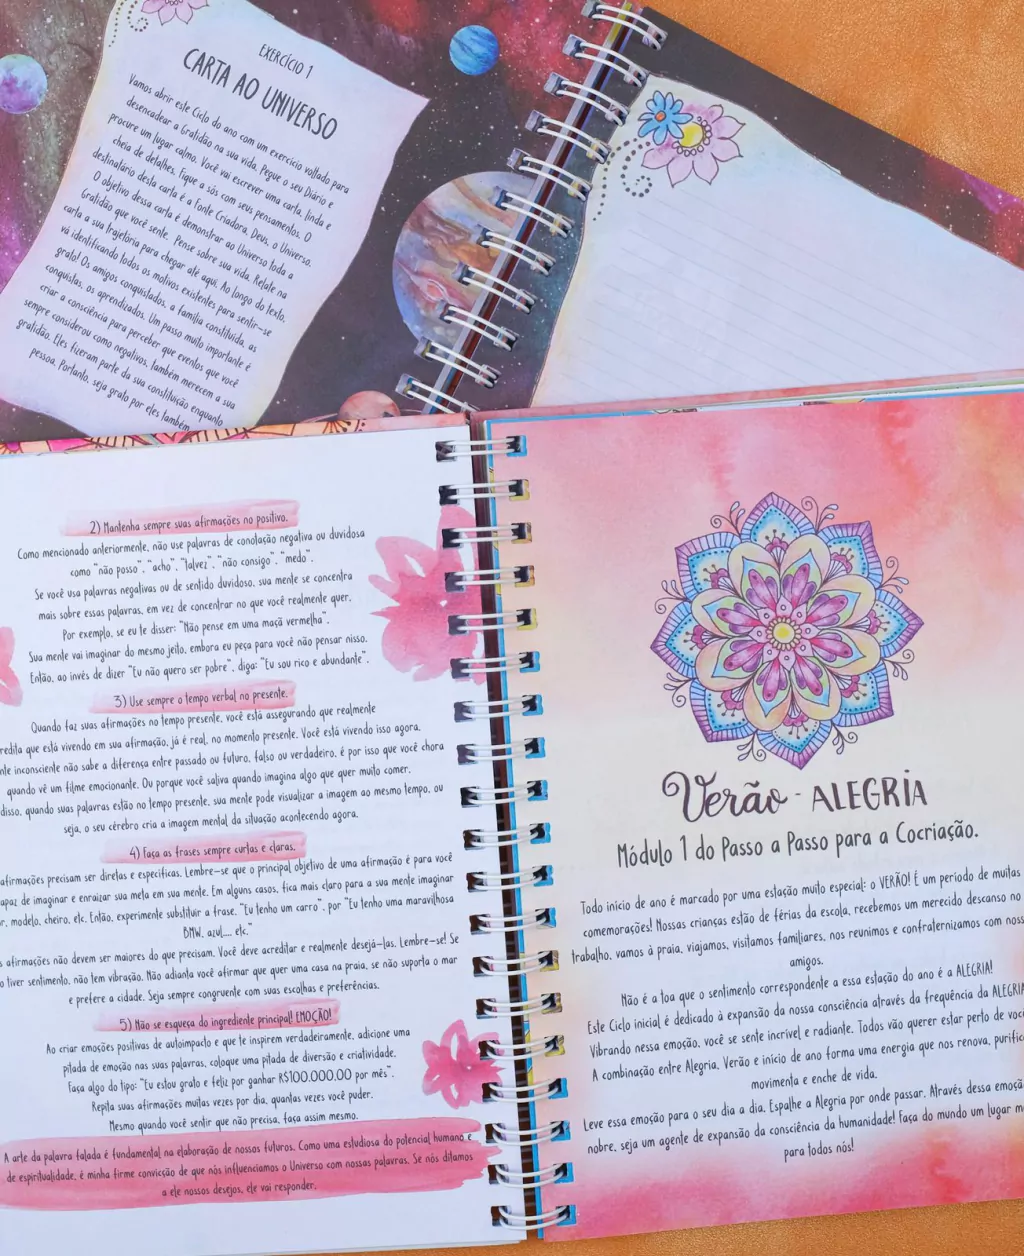 EXERCÍCIO 1
CARTA AO UNIVERSO
Vamos abrir este Ciclo do ano com um exercício voltado para
desencadear a Gratidão na sua vida. Pegue o seu Diário e
procure um lugar calmo. Você vai escrever uma carta, linda e
cheia de detalhes. Fique a sós com seus pensamentos. O
destinatário desta carta é a Fonte Criadora, Deus, o Universo.
O objetivo dessa carta é demonstrar ao Universo toda a
Gratidão que você sente. Pense sobre sua vida. Relate na
carta a sua trajetória para chegar até aqui. Ao longo do texto,
vá identificando todos os motivos existentes para sentir-se
grato! Os amigos conquistados, a família constituída, as
conquistas, os aprendizados. Um passo muito importante é
criar a consciência para perceber que eventos que você
sempre considerou como negativos, também merecem a sua
gratidão. Eles fizeram parte da sua constituição enquanto
pessoa. Portanto, seja grato por eles também
2) Mantenha sempre suas afirmações no positivo.
Como mencionado anteriormente, não use palavras de conotação negativa ou duvidosa
como "não posso", "acho", "talvez", "não consigo", "medo".
Se você usa palavras negativas ou de sentido duvidoso, sua mente se concentra
mais sobre essas palavras, em vez de concentrar no que você realmente quer.
Por exemplo, se eu te disser: "Não pense em uma maçã vermelha".
Sua mente vai imaginar do mesmo jeito, embora eu peça para você não pensar nisso.
Então, ao invés de dizer "Eu não quero ser pobre", diga: "Eu sou rico e abundante".
3) Use sempre o tempo verbal no presente.
Quando faz suas afirmações no tempo presente, você está assegurando que realmente
redita que está vivendo em sua afirmação, já é real, no momento presente. Você está vivendo isso agora.
nte inconsciente não sabe a diferença entre passado ou futuro, falso ou verdadeiro, é por isso que você chora
quando vê um filme emocionante. Ou porque você saliva quando imagina algo que quer muito comer.
disso, quando suas palavras estão no tempo presente, sua mente pode visualizar a imagem ao mesmo tempo, ou
seja, o seu cérebro cria a imagem mental da situação acontecendo agora.
4) Faça as frases sempre curtas e claras.
afirmações precisam ser diretas e específicas. Lembre-se que o principal objetivo de uma afirmação é para você
apaz de imaginar e enraizar sua meta em sua mente. Em alguns casos, fica mais claro para a sua mente imaginar
r, modelo, cheiro, etc. Então, experimente substituir a frase, "Eu tenho um carro", por "Eu tenho uma maravilhosa
BMW, azul..., etc."
s afirmações não devem ser maiores do que precisam. Você deve acreditar e realmente desejá-las. Lembre-se! Se
o tiver sentimento, não tem vibração. Não adianta você afirmar que quer uma casa na praia, se não suporta o mar
e prefere a cidade. Seja sempre congruente com suas escolhas e preferências.
5) Não se esqueça do ingrediente principal! EMOÇÃO!
Ao criar emoções positivas de autoimpacto e que te inspirem verdadeiramente, adicione uma
pitada de emoção nas suas palavras, coloque uma pitada de diversão e criatividade.
Faça algo do tipo: "Eu estou grato e feliz por ganhar R$100.000,00 por mês".
Repita suas afirmações muitas vezes por dia, quantas vezes você puder.
Mesmo quando você sentir que não precisa, faça assim mesmo.
A arte da palavra falada é fundamental na elaboração de nossos futuros. Como uma estudiosa do potencial humano e
de espiritualidade, é minha firme convicção de que nós influenciamos o Universo com nossas palavras. Se nós ditamos
a ele nossos desejos, ele vai responder.
Verão - ALEGRIA
Módulo 1 do Passo a Passo para a Cocriação.
Todo início de ano é marcado por uma estação muito especial: o VERÃO! É um período de muitas
comemorações! Nossas crianças estão de férias da escola, recebemos um merecido descanso no
trabalho, vamos à praia, viajamos, visitamos familiares, nos reunimos e confraternizamos com noss
amigos.
Não é a toa que o sentimento correspondente a essa estação do ano é a ALEGRIA!
Este Ciclo inicial é dedicado à expansão da nossa consciência através da frequência da ALEGRIA
Vibrando nessa emoção, você se sente incrível e radiante. Todos vão querer estar perto de você
A combinação entre Alegria, Verão e início de ano forma uma energia que nos renova, purifica
movimenta e enche de vida.
Leve essa emoção para o seu dia a dia. Espalhe a Alegria por onde passar. Através dessa emoção
nobre, seja um agente de expansão da consciência da humanidade! Faça do mundo um lugar m
para todos nós!